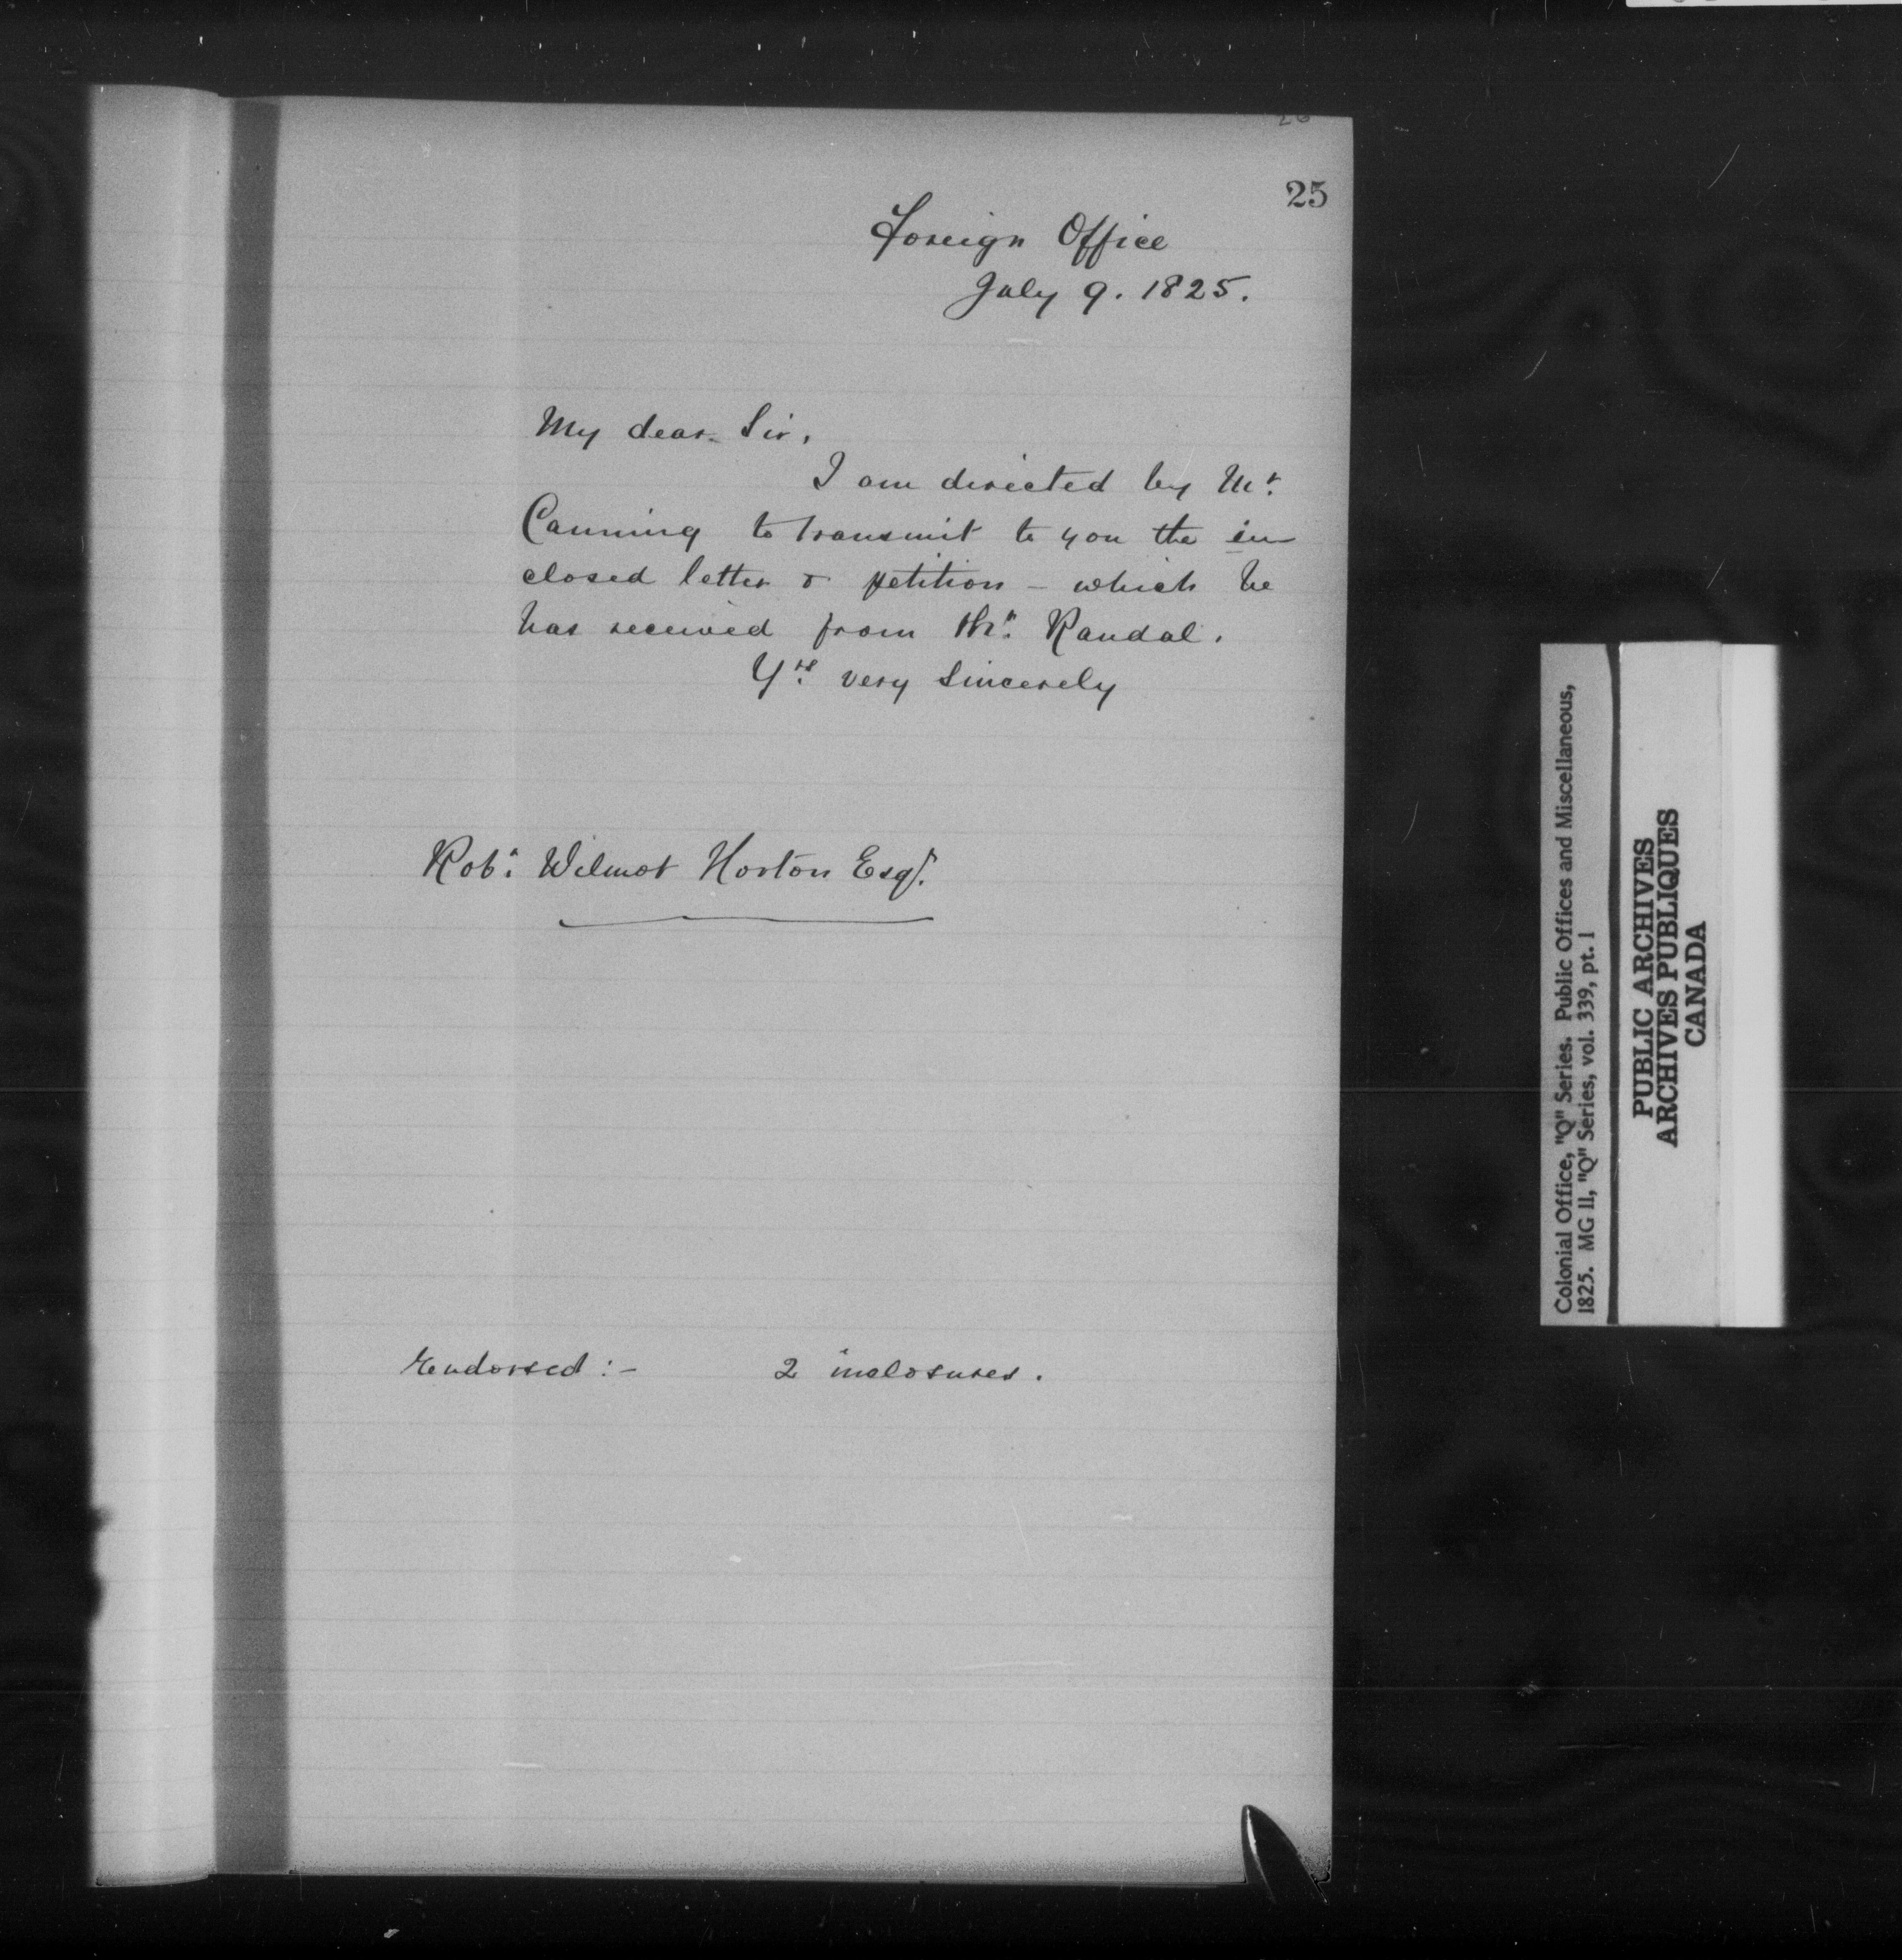 25
Foreign Office
July 9. 1825.
My dear Sir,
I am directed by Mr.
Canning to transmit to you the in
closed letter & petition – which he
has received from Mr. Randal.
Yrs. very sincerely
Robt. Wilmot Horton Esqr.
Endorsed :– 2 inclosures.
Colonial Office, "Q" Series. Public Offices and Miscellaneous,
1825. MG 11, "Q" Series, vol. 339, pt. 1
PUBLIC ARCHIVES
ARCHIVES PUBLIQUES
CANADA